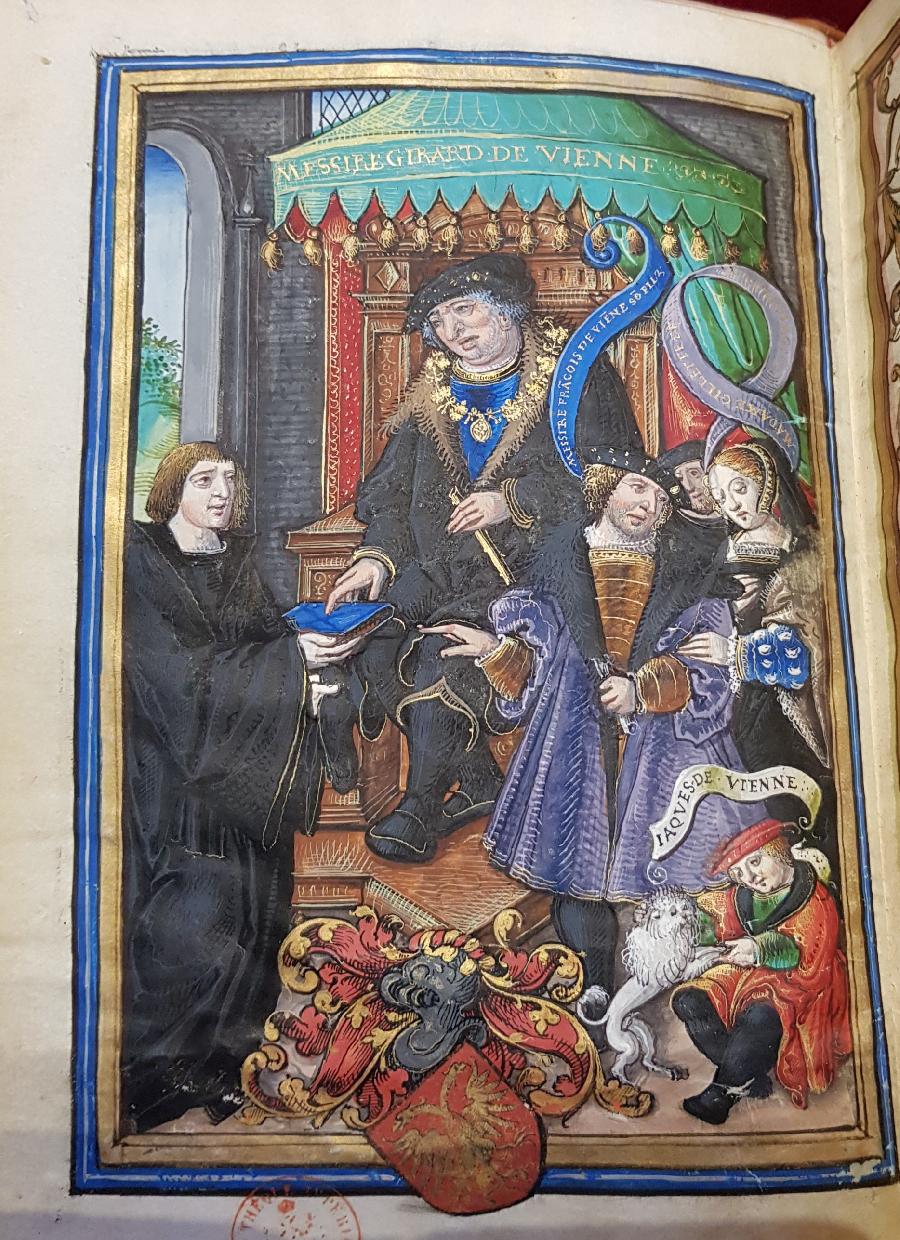 MESSIRE GIRARD·DE·VIENNE
MESSIRE FRÃCOIS DE VIẼNE SÕ FILZ
MADAME GILLETTE
IAQVES·DE·VIENNE